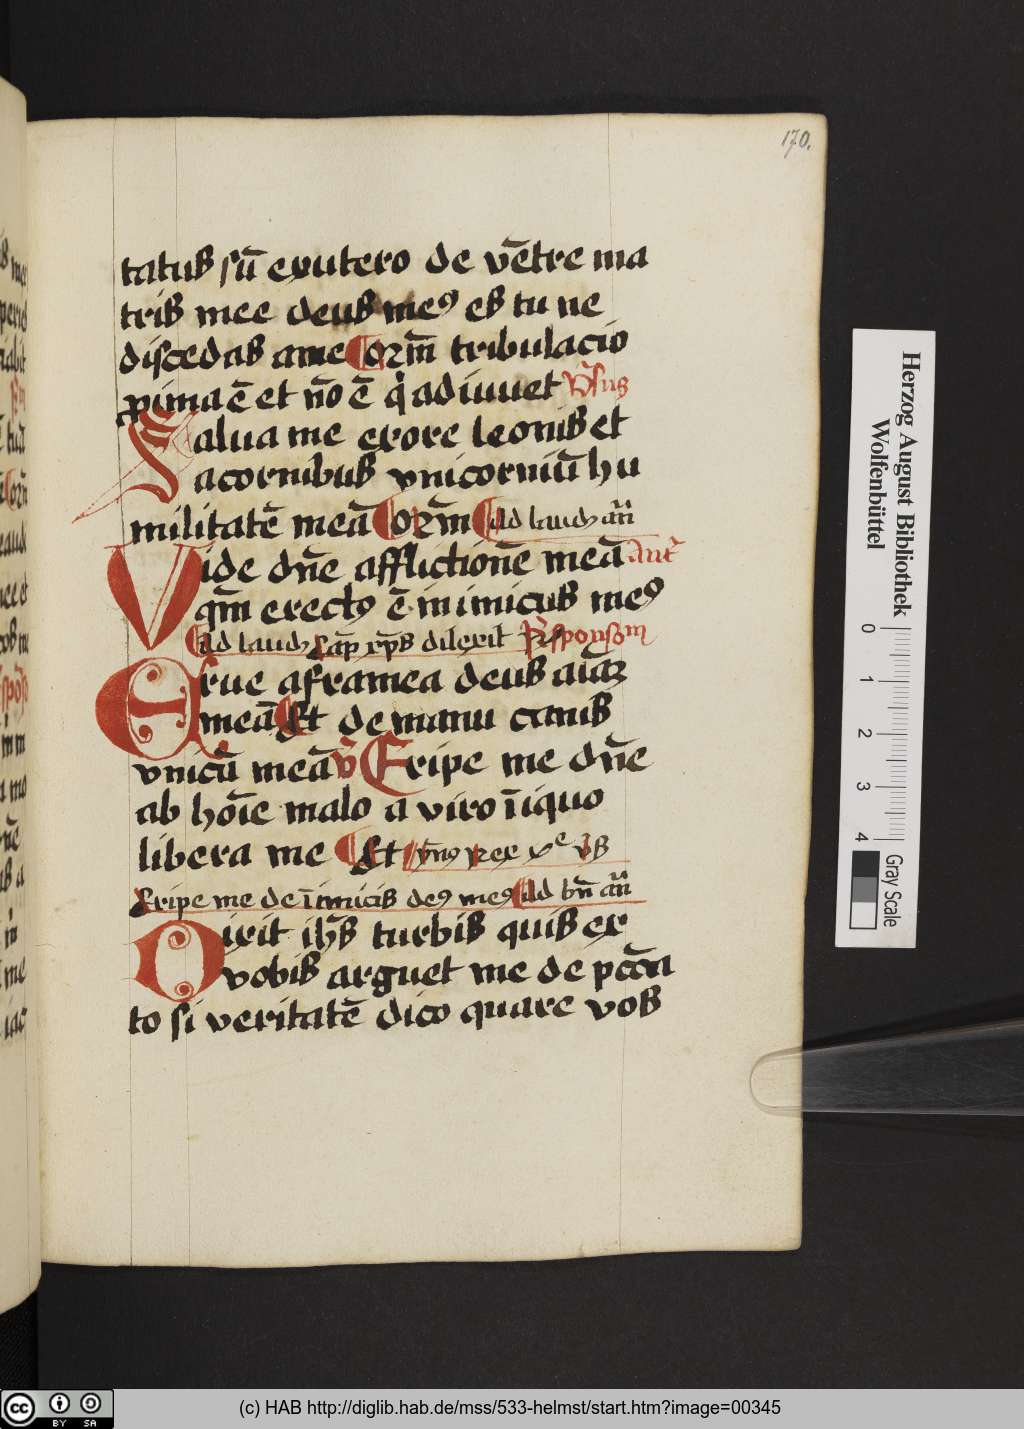 170.
tatus sū exutero de vētre ma
tris mee deus meꝰ es tu ne
discedas ame Qm̄ tribulacio
ꝓxima ē et nō ē q̇ adiuuet v̄sus
Salua me exore leonis et
acornibus vnicorniū hu
militatē meā Qm̄ Ad laud añ
Vide dn̄e afflictionē meā Ant̄
qm̄ erectꝰ ē inimicus meꝰ
Ad laud Cap̄ xp̄s dilexit R̄sponsom
Erue aframea deus aīaꝫ
meā Et de manu canis
vnicū meā v̄ Eripe me dn̄e
ab hoīe malo a viro īiquo
libera me Et ẏmꝰ rex xᵉ v̄s
Eripe me de īimicis deꝰ meꝰ Ad bn̄ añ
Dixit ih̄s turbis quis ex
vobis arguet me de pcc̄a
to si veritatē dico quare vos
Herzog August Bibliothek
Wolfenbüttel
0 1 2 3 4
Gray Scale
BY SA
(c) HAB http://diglib.hab.de/mss/533-helmst/start.htm?image=00345